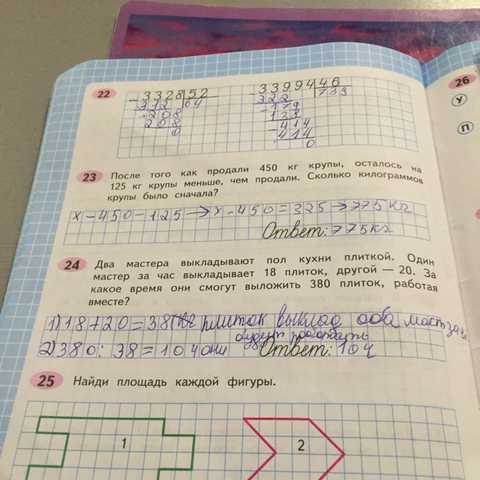 22
3328 52
312 64
208
208
0
33994 46
322 739
179
138
414
414
0
26
У
П
23 После того как продали 450 кг крупы, осталось на
125 кг крупы меньше, чем продали. Сколько килограммов
крупы было сначала?
х-450-125→х-450=325→775кг
Ответ: 775кг
24 Два мастера выкладывают пол кухни плиткой. Один
мастер за час выкладывает 18 плиток, другой — 20. За
какое время они смогут выложить 380 плиток, работая
вместе?
1) 18+20=38 плиток выклад оба маст за ч
2) 380:38=10ч они будут работать
Ответ: 10ч
25 Найди площадь каждой фигуры.
1
2